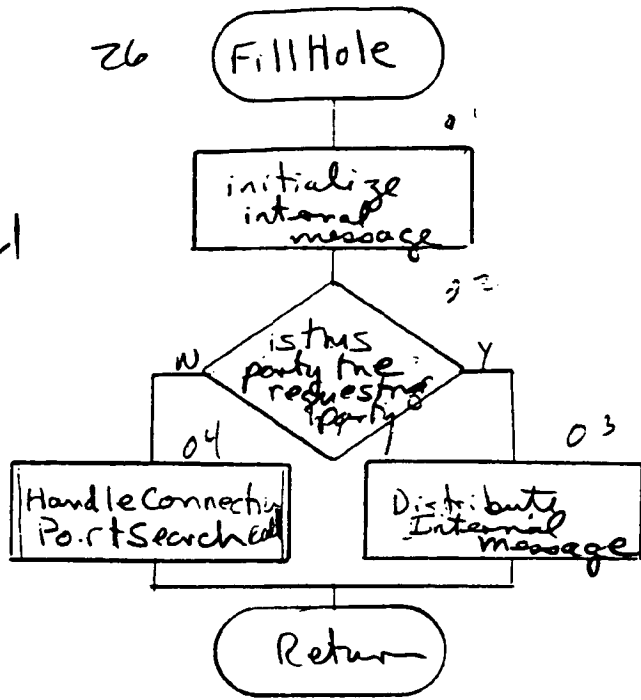 26
FillHole
initialize
internal
message
is this
party the
requesting
party?
N
Y
04
03
Handle Connection
Port Search
Distribute
Internal
message
Return